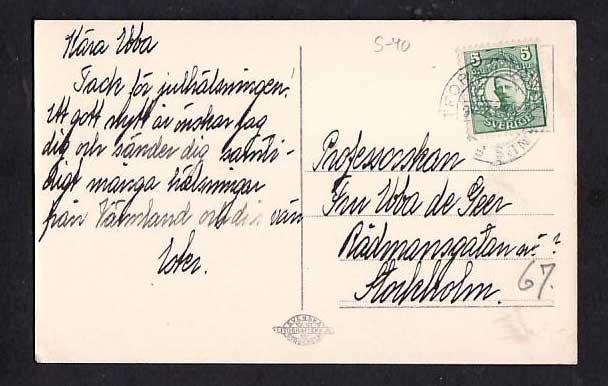 Kära Ebba
Tack för julhälsningen!
Ett gott nytt år önskar jag
dig och sänder dig samti-
digt många hälsningar
från Värmland och din vän
Ester.
S-40
5 5
SVERIGE
Professorskan
Fru Ebba de Geer
Rådmansgatan ?
Stockholm.
67.
SVENSKA